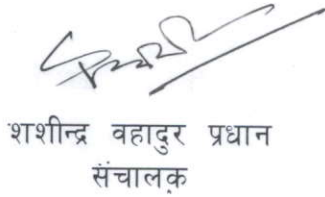 शशीन्द्र वहादुर प्रधान
संचालक